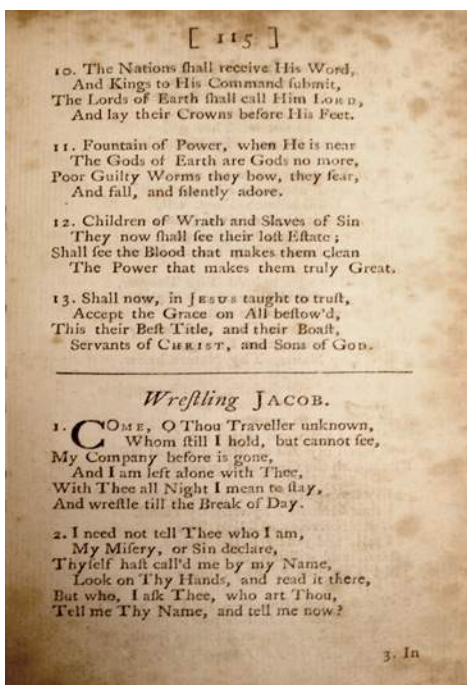 [ 115 ]
10. The Nations ſhall receive His Word,
And Kings to His Command ſubmit,
The Lords of Earth ſhall call Him LORD,
And lay their Crowns before His Feet.
11. Fountain of Power, when He is near
The Gods of Earth are Gods no more,
Poor Guilty Worms they bow, they fear,
And fall, and ſilently adore.
12. Children of Wrath and Slaves of Sin
They now ſhall ſee their loſt Eſtate;
Shall ſee the Blood that makes them clean
The Power that makes them truly Great.
13. Shall now, in JESUS taught to truſt,
Accept the Grace on All beſtow'd,
This their Beſt Title, and their Boaſt,
Servants of CHRIST, and Sons of GOD.
Wreſtling JACOB.
1. COME, O Thou Traveller unknown,
Whom ſtill I hold, but cannot ſee,
My Company before is gone,
And I am left alone with Thee,
With Thee all Night I mean to ſtay,
And wreſtle till the Break of Day.
2. I need not tell Thee who I am,
My Miſery, or Sin declare,
Thyſelf haſt call'd me by my Name,
Look on Thy Hands, and read it there,
But who, I aſk Thee, who art Thou,
Tell me Thy Name, and tell me now?
3. In